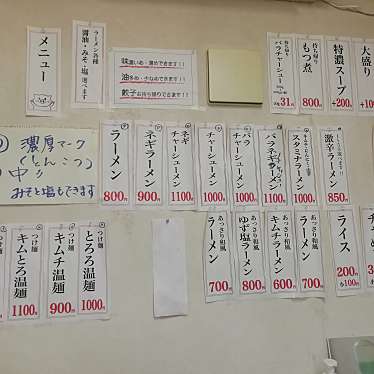 メニュー
ラーメン各種
醤油・みそ・塩
選べます
味濃いめ・薄めできます!!
油多め・少なめできます!!
餃子お持ち帰りできます!!
持ち帰り
バラチャーシュー
31
持ち帰り
もつ煮
800
特濃スープ
+200
大盛り
+10
濃厚マーク
(とんこつ)
中り
みそと塩もできます
ラーメン
800円
ネギラーメン
900円
ネギ
チャーシューメン
1100円
チャーシューメン
1000円
バラ
チャーシューメン
1000円
バラネギ
チャーシューメン
1100円
スタミナラーメン
1000円
激辛ラーメン
850円
つけ麺
キムとろ温麺
1100円
つけ麺
キムチ温麺
900円
つけ麺
とろろ温麺
1000円
あっさり和風
ラーメン
700円
あっさり和風
ゆず塩ラーメン
800円
あっさり和風
キムチラーメン
600円
あっさり和風
ラーメン
700円
ライス
200円
小100円